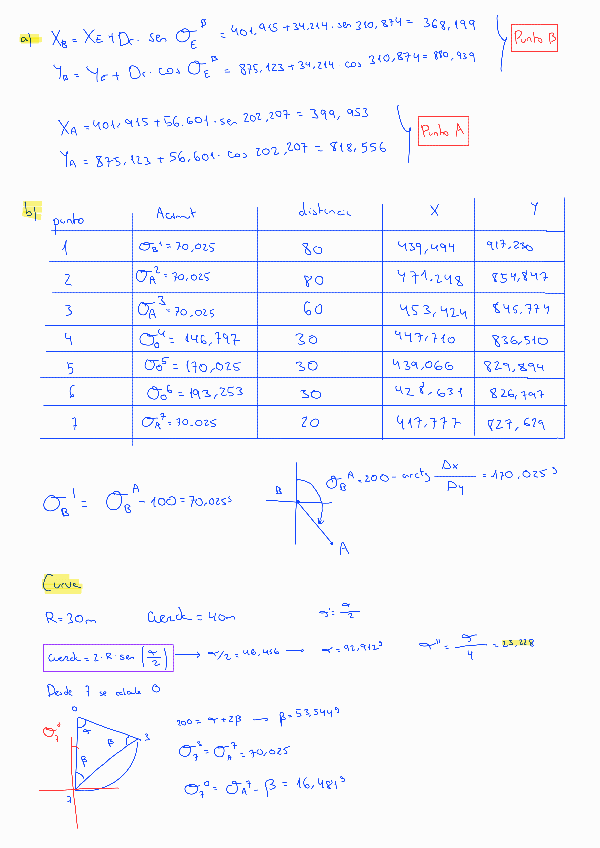 a) X_B = X_E + Dr. sen σ_E^B = 401,915 + 34,214 . sen 310,874 = 368,199
Punto B
Y_B = Y_E + Dr. cos σ_E^B = 875,123 + 34,214 cos 310,874 = 880,939
X_A = 401,915 + 56,601 . sen 202,207 = 399,953
Punto A
Y_A = 875,123 + 56,601 . cos 202,207 = 818,556
b) punto Acimut distancia X Y
1 σ_B^1 = 70,025 80 439,494 917,230
2 σ_A^2 = 70,025 80 471,248 854,847
3 σ_A^3 = 70,025 60 453,424 845,774
4 σ_0^4 = 146,797 30 447,710 836,510
5 σ_0^5 = 170,025 30 439,066 829,894
6 σ_0^6 = 193,253 30 428,631 826,797
7 σ_A^7 = 70,025 20 417,777 827,629
σ_B^A = 200 - arctg Δx/Δy = 170,025g
σ_B^1 = σ_B^A - 100 = 70,025g
B
A
Curva
R = 30m Cuerda = 40m σ' = α/2
Cuerda = 2 . R . sen (α/2) → α/2 = 46,456 → α = 92,912g α'' = α/4 = 23,228
Desde 7 se calcula 0
0
σ_7^0 α
200 = α + 2β → β = 53,544g
β 3
β
σ_7^3 = σ_A^7 = 70,025
σ_7^0 = σ_A^7 - β = 16,481g
7